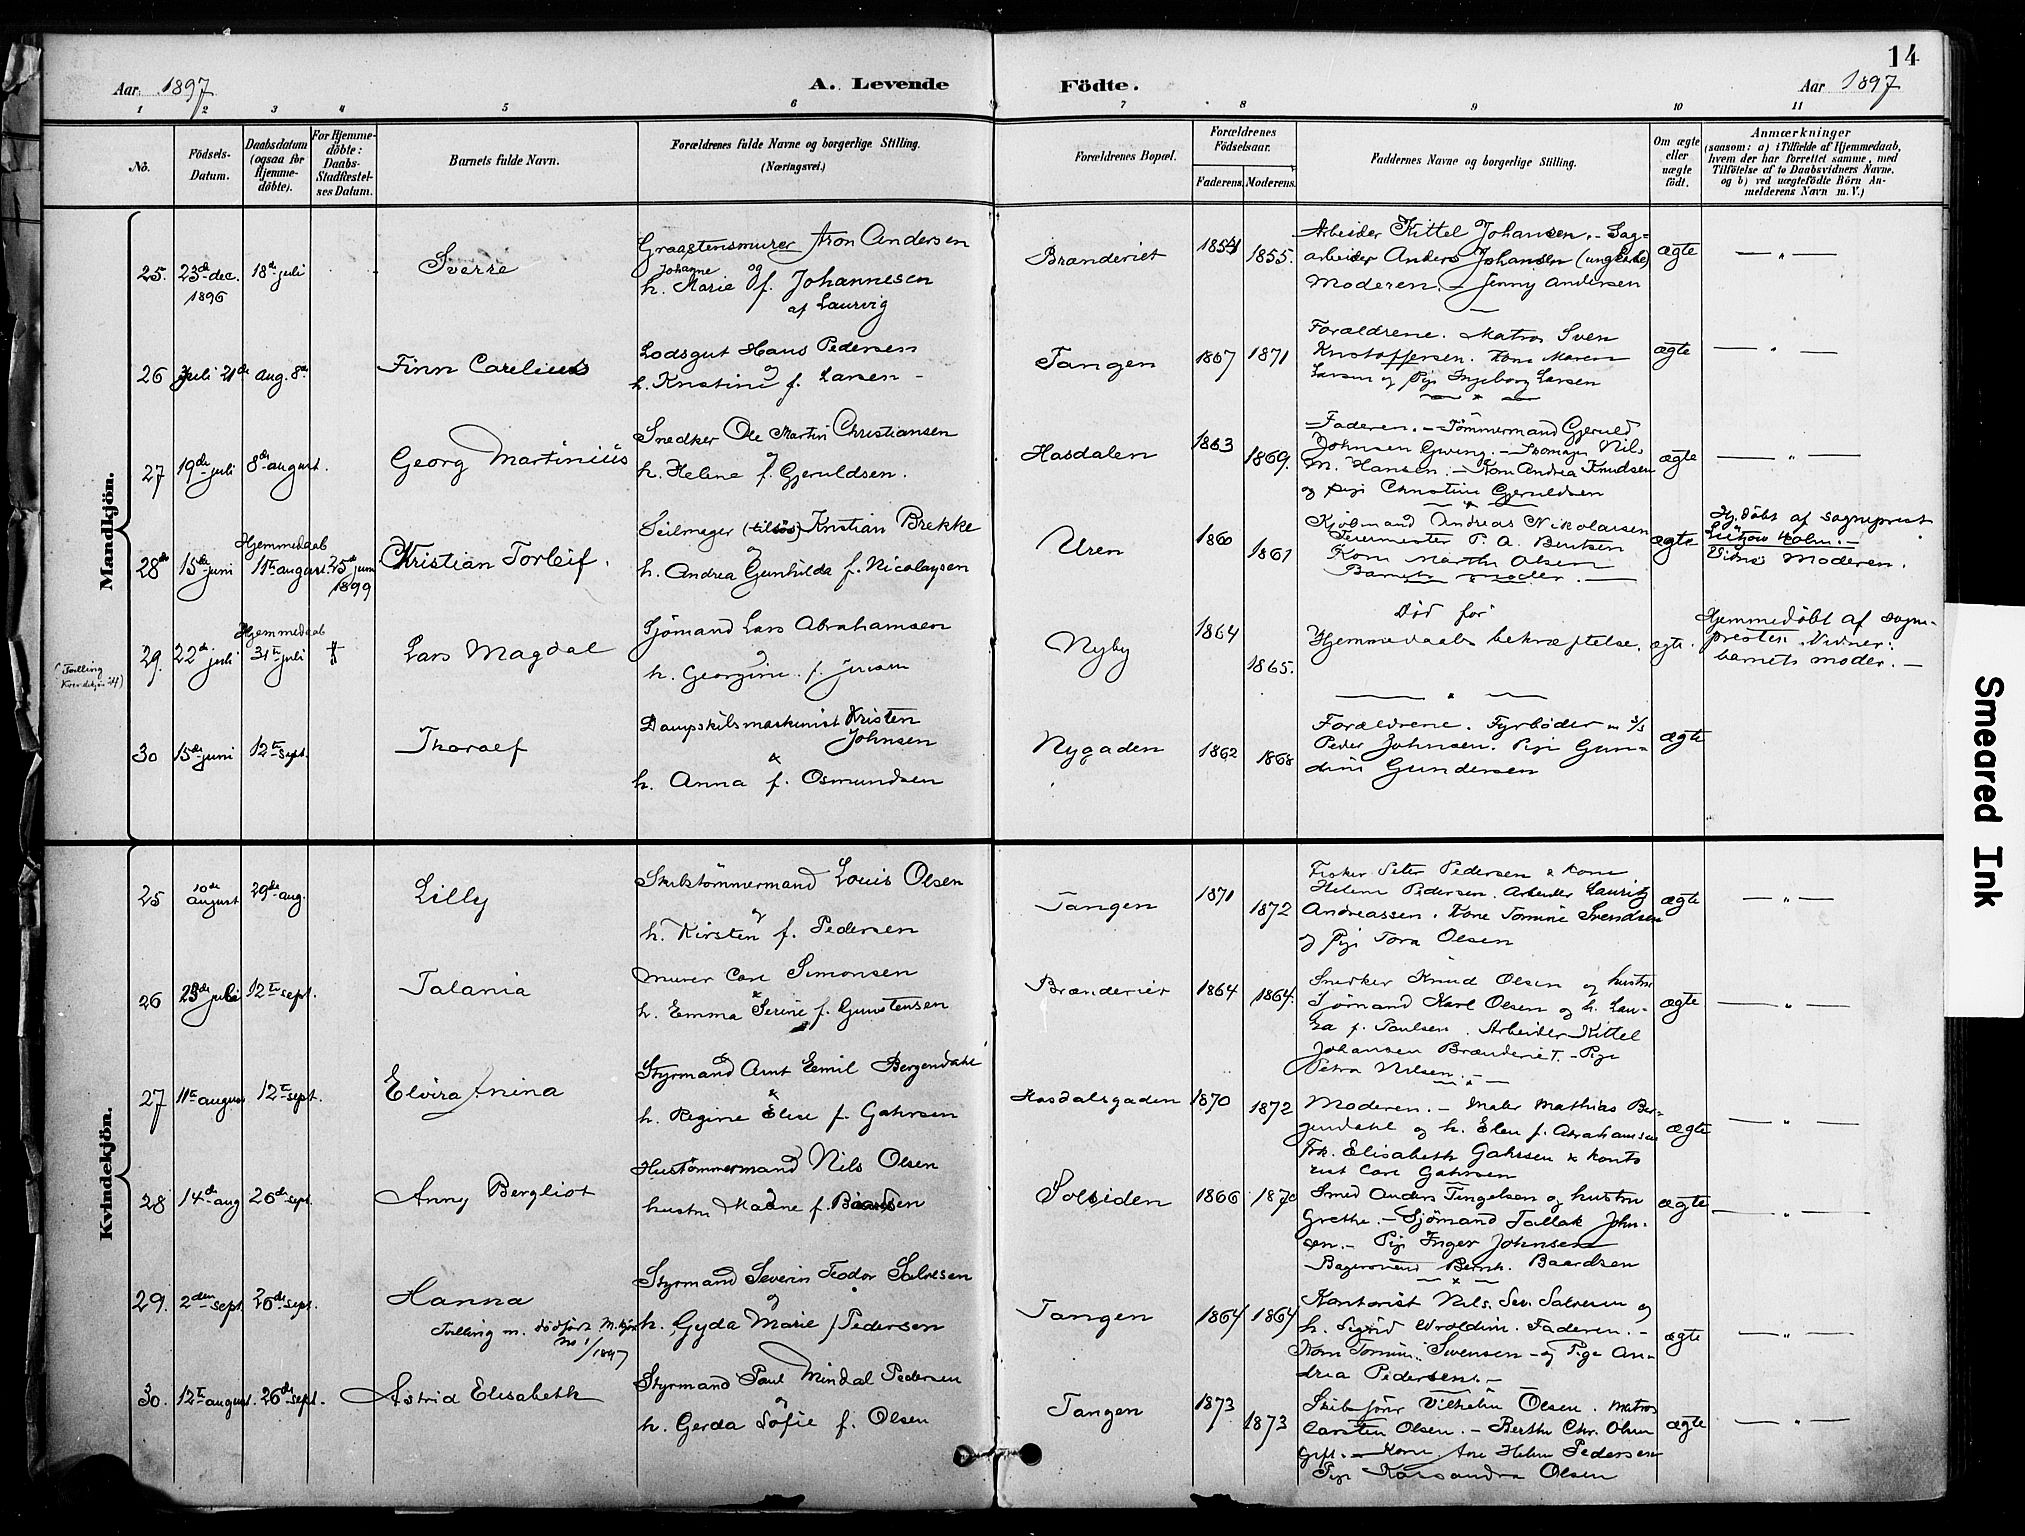 14
Aar 1897
A. Levende
Födte.
Aar 1897
1 2 3 4 5 6 7 8 9 10 11
No.
Födsels-
Datum.
Daabsdatum
(ogsaa for
Hjemme-
döbte).
For Hjemme-
döbte:
Daabs-
Stadfæstel-
ses Datum.
Barnets fulde Navn.
Forældrenes fulde Navne og borgerlige Stilling.
(Næringsvei.)
Forældrenes Bopæl.
Forældrenes
Födselsaar.
Faderens. Moderens.
Faddernes Navne og borgerlige Stilling.
Om ægte
eller
uægte
födt.
Anmærkninger
(saasom: a) i Tilfælde af Hjemmedaab,
hvem der har forrettet samme, med
Tilföielse af to Daabsvidners Navne.
og b) ved uægtefödte Börn An-
melderens Navn m. V.)
Mandkjön.
25. 23de dec. 18de juli
1896
Sverre
Graastensmurer Aron Andersen
Johanne og
h. Marie f. Johannesen
af Laurvig
Brænderiet
1854 1855.
Arbeider Kittel Johansen. - Sag-
arbeider Anders Johansen (ungkarl)
Moderen. - Jenny Andersen
ægte
26 Juli 21de aug. 8de
Finn Carelius
Lodsgut Hans Pedersen
og
h. Kristine f. Larsen -
Tangen
1867 1871
Forældrene. Matros Sven
Kristoffersen. Kone Maren
Larsen og Pige Ingeborg Larsen
ægte
27 19de juli 8de august.
Georg Martinius
Snedker Ole Martin Christiansen
og
h. Helene f. Gjeruldsen.
Hasdalen
1863 1869.
Faderen. - Tömmermand Gjeruld
Johnsen - Nils
M. Hansen. - Kone Andrea Knudsen
og pige Christine Gjeruldsen
ægte
28de 15de juni Hjemmedaab
11te august. 25de juni
1899
Kristian Torleif.
Seilmager (tilsös) Kristian Brekke
og
h. Andrea Gunhilda f. Nicolaysen
Uren
1860 1861
Kjöbmand Andreas Nikolaisen
P. A. Bentsen
Kone Marthe Olsen
Barnets moder.
ægte
Hj.döbt af sogneprest
Lützow Holm. -
Vidne Moderen.
29. 22de juli Hjemmedaab
31te juli †
(Tvilling
Kvindekjøn 24)
Lars Magdal
Sjömand Lars Abrahamsen
og
h. Georgine f. Jensen
Nyby
1864 1865.
Död för
Hjemmedaabs bekræftelse.
ægte.
Hjemmedöbt af sogne-
presten. Vidner:
barnets moder. -
30 15de juni 12te sept.
Thoralf
Dampskibsmaskinist Kristen
Johnsen
&
h. Anna f. Osmundsen
Nygaden
1862 1868
Forældrene. Fyrböder
Peder Johnsen. Pige Gun-
dine Gundersen
ægte
Kvindekjön.
25 10de
august 29de aug.
Lilly
Skibstömmermand Louis Olsen
og
h. Kirsten f. Pedersen
Tangen
1871 1872
Fisker Peter Pedersen & kone
Helene Pedersen. Arbeider Lauritz
Andreassen. Kone Tomine Svendsen
og pige Tora Olsen
ægte
26 25de juli 12te sept.
Talania
Murer Carl Simonsen
&
h. Emma Serine f. Gunstensen
Brænderiet
1864 1864.
Snedker Knud Olsen og hustru
Sjömand Karl Olsen og h. Lau-
ra f. Paulsen. Arbeider Kittel
Johansen Brænderiet. - Pige
Petra Nilsen. -
ægte
27 11te august 12te sept.
Elvira Anina
Styrmand Aunt Emil Bergendahl
&
h. Regine Elise f. Gahrsen
Hasdalsgaden
1870 1872
Moderen. - Maler Mathias Ber-
gendahl og h. Elen f. Abrahamsen
Frk. Elisabeth Gahrsen & konto
rist Carl Gahrsen
ægte
28 14de aug 26de sept.
Anny Bergliot
Hustömmermand Nils Olsen
hustru Madne f. Baardsen
Solsiden
1866 1870
Smed Anders Tingelsen og hustru
Grethe. - Sjömand Tallak John-
sen. - Pige Inger Johnsen
Bagersvend Bernh. Baardsen
ægte
29. 2den sept. 26de sept.
Hanna
Tvilling m. dödfödt M.kjön
No 1/1897
Styrmand Severin Teodor Salvesen
og
h. Gyda Marie f Pedersen
Tangen
1864 1864
Kontorist Nils Sev. Salvesen og
h. Sigrid Wroldsen. Faderen. -
Kone Tomine Svensen - og Pige An-
drea Pedersen. -
ægte
30. 12te august. 26de sept.
Astrid Elisabeth
Styrmand Paul Mindal Pedersen
og
h. Gerda Sofie f. Olsen
Tangen
1873 1873
Skibsförer Vilhelm Olsen. Matros
Carsten Olsen. - Berthe Chr. Olsen
gift. - Kone Ane Helene Pedersen
Pige Kassandra Olsen
ægte
Smeared Ink